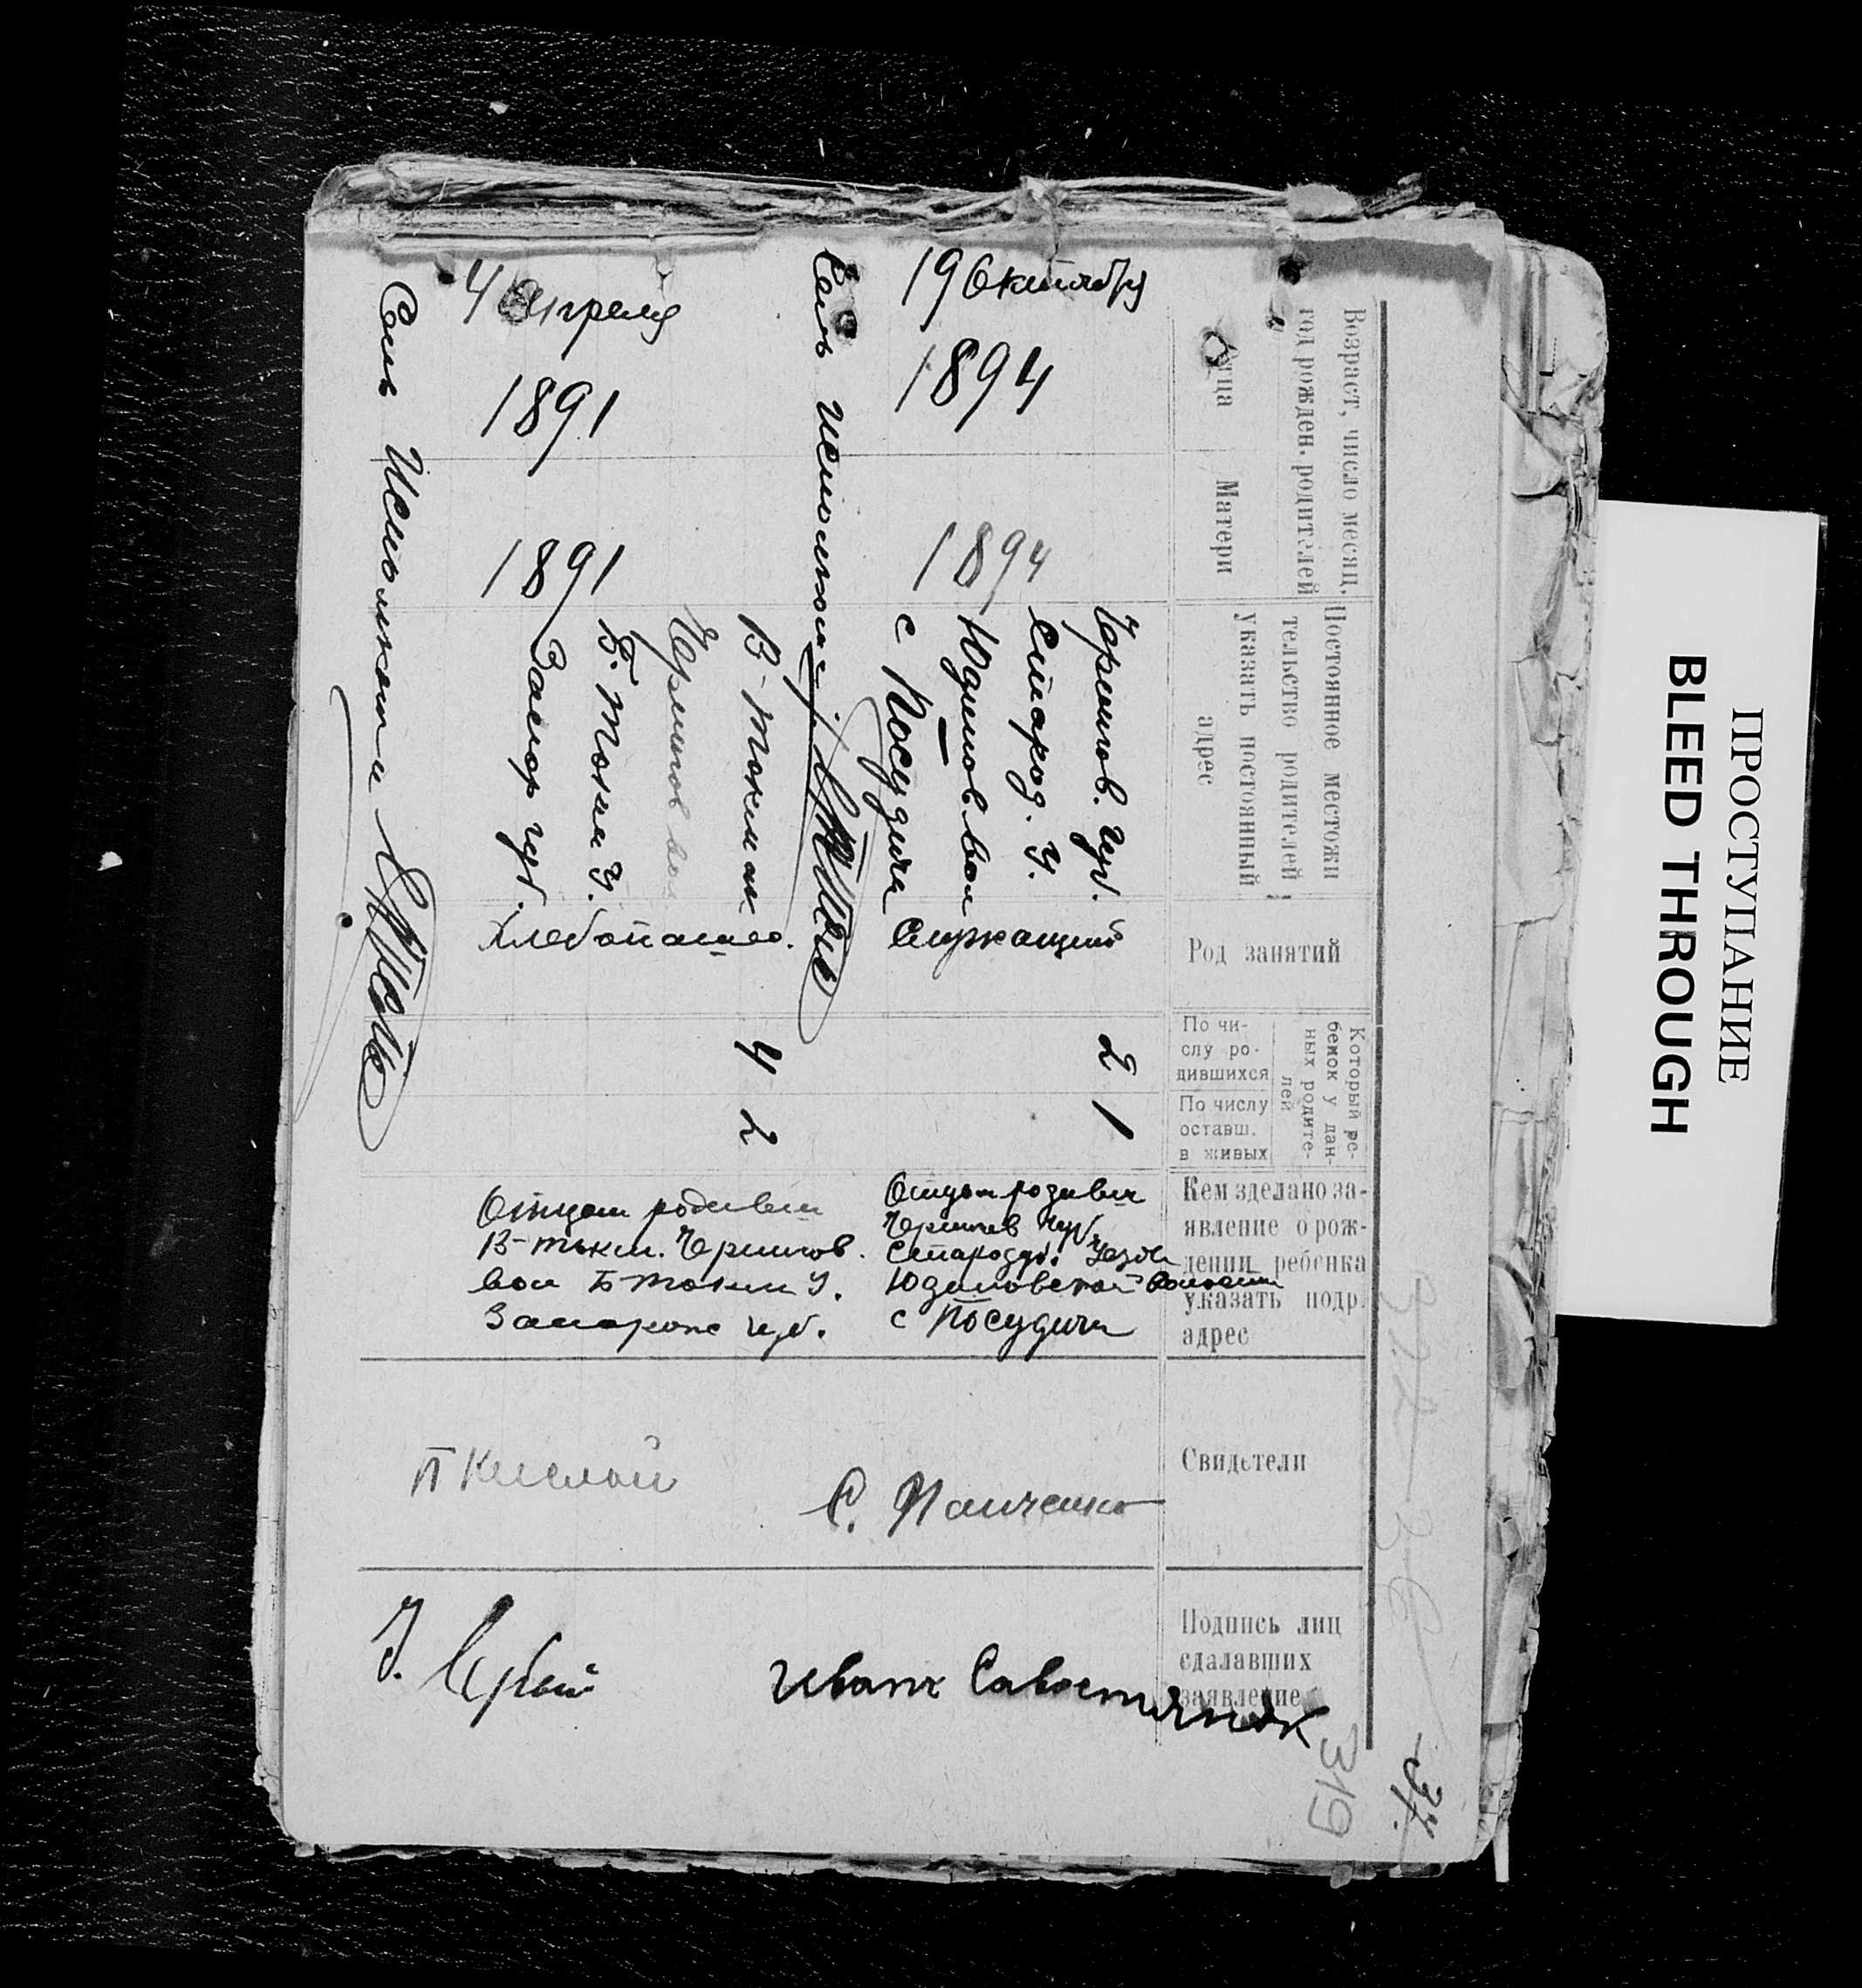 Возраст, число месяц,
год рожден. родителей
Отца
Матери
Постоянное местожи
тельство родителей
указать постоянный
адрес
Род занятий
Который ре-
бенок у дан-
ных родите-
лей
По чи-
слу ро-
дившихся
По числу
оставш.
в живых
Кем зделано за-
явление о рож-
дении ребенка
указать подр.
адрес
Свидетели
Подпись лиц
сдалавших
заявление
19 Октября
1894
1894
Чернигов. Губ.
Старод. У.
Юдинов. вол
с Посудичи
Служащий
2
1
Отцом
Стародуб. Уезда
Юдиновской волости
с Посудичи
С. Панченко
Иван Савостиянок
4 Апреля
1891
1891
В-Токмак
Чернигов вол
Б. Токм У.
Запор губ.
Хлебопаш.
4
2
Отцом
В-токм. Чернигов.
вол Б-токм У.
Запорож губ.
319
ПРОСТУПАНИЕ
BLEED THROUGH